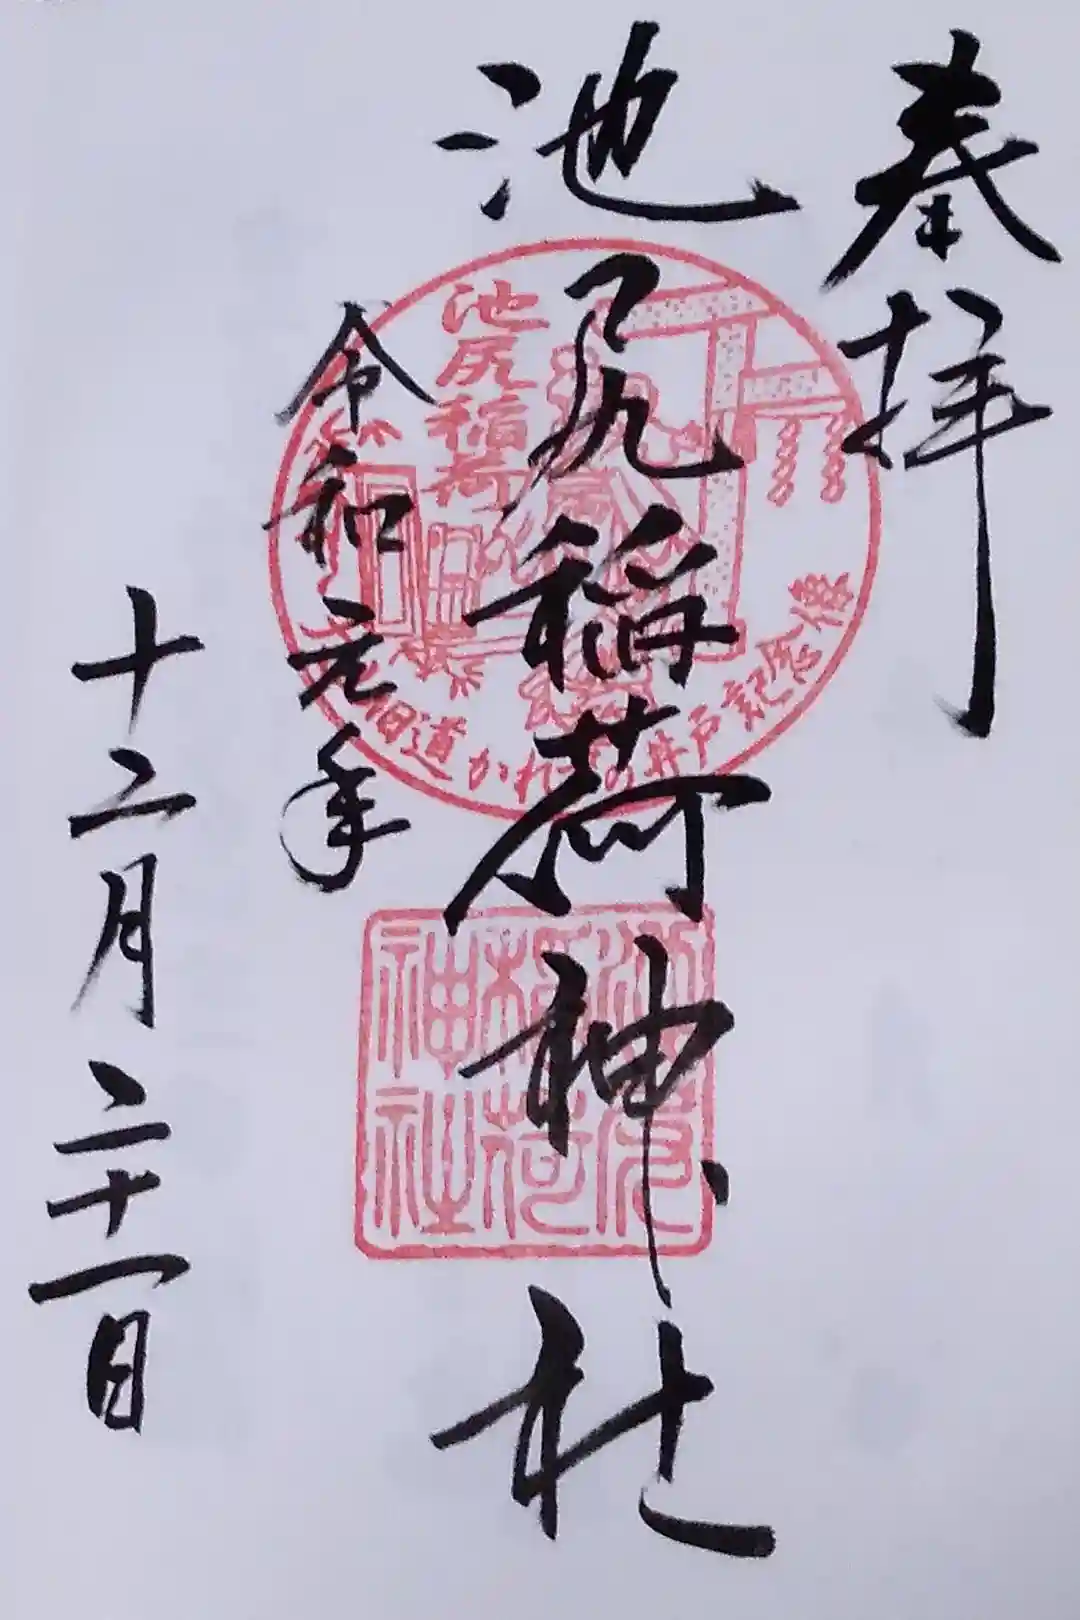 奉拝
池尻稲荷神社
令和元年
十二月二十一日
池尻稲荷
旧道 かれずの井戸 記憶像
稲荷
神社